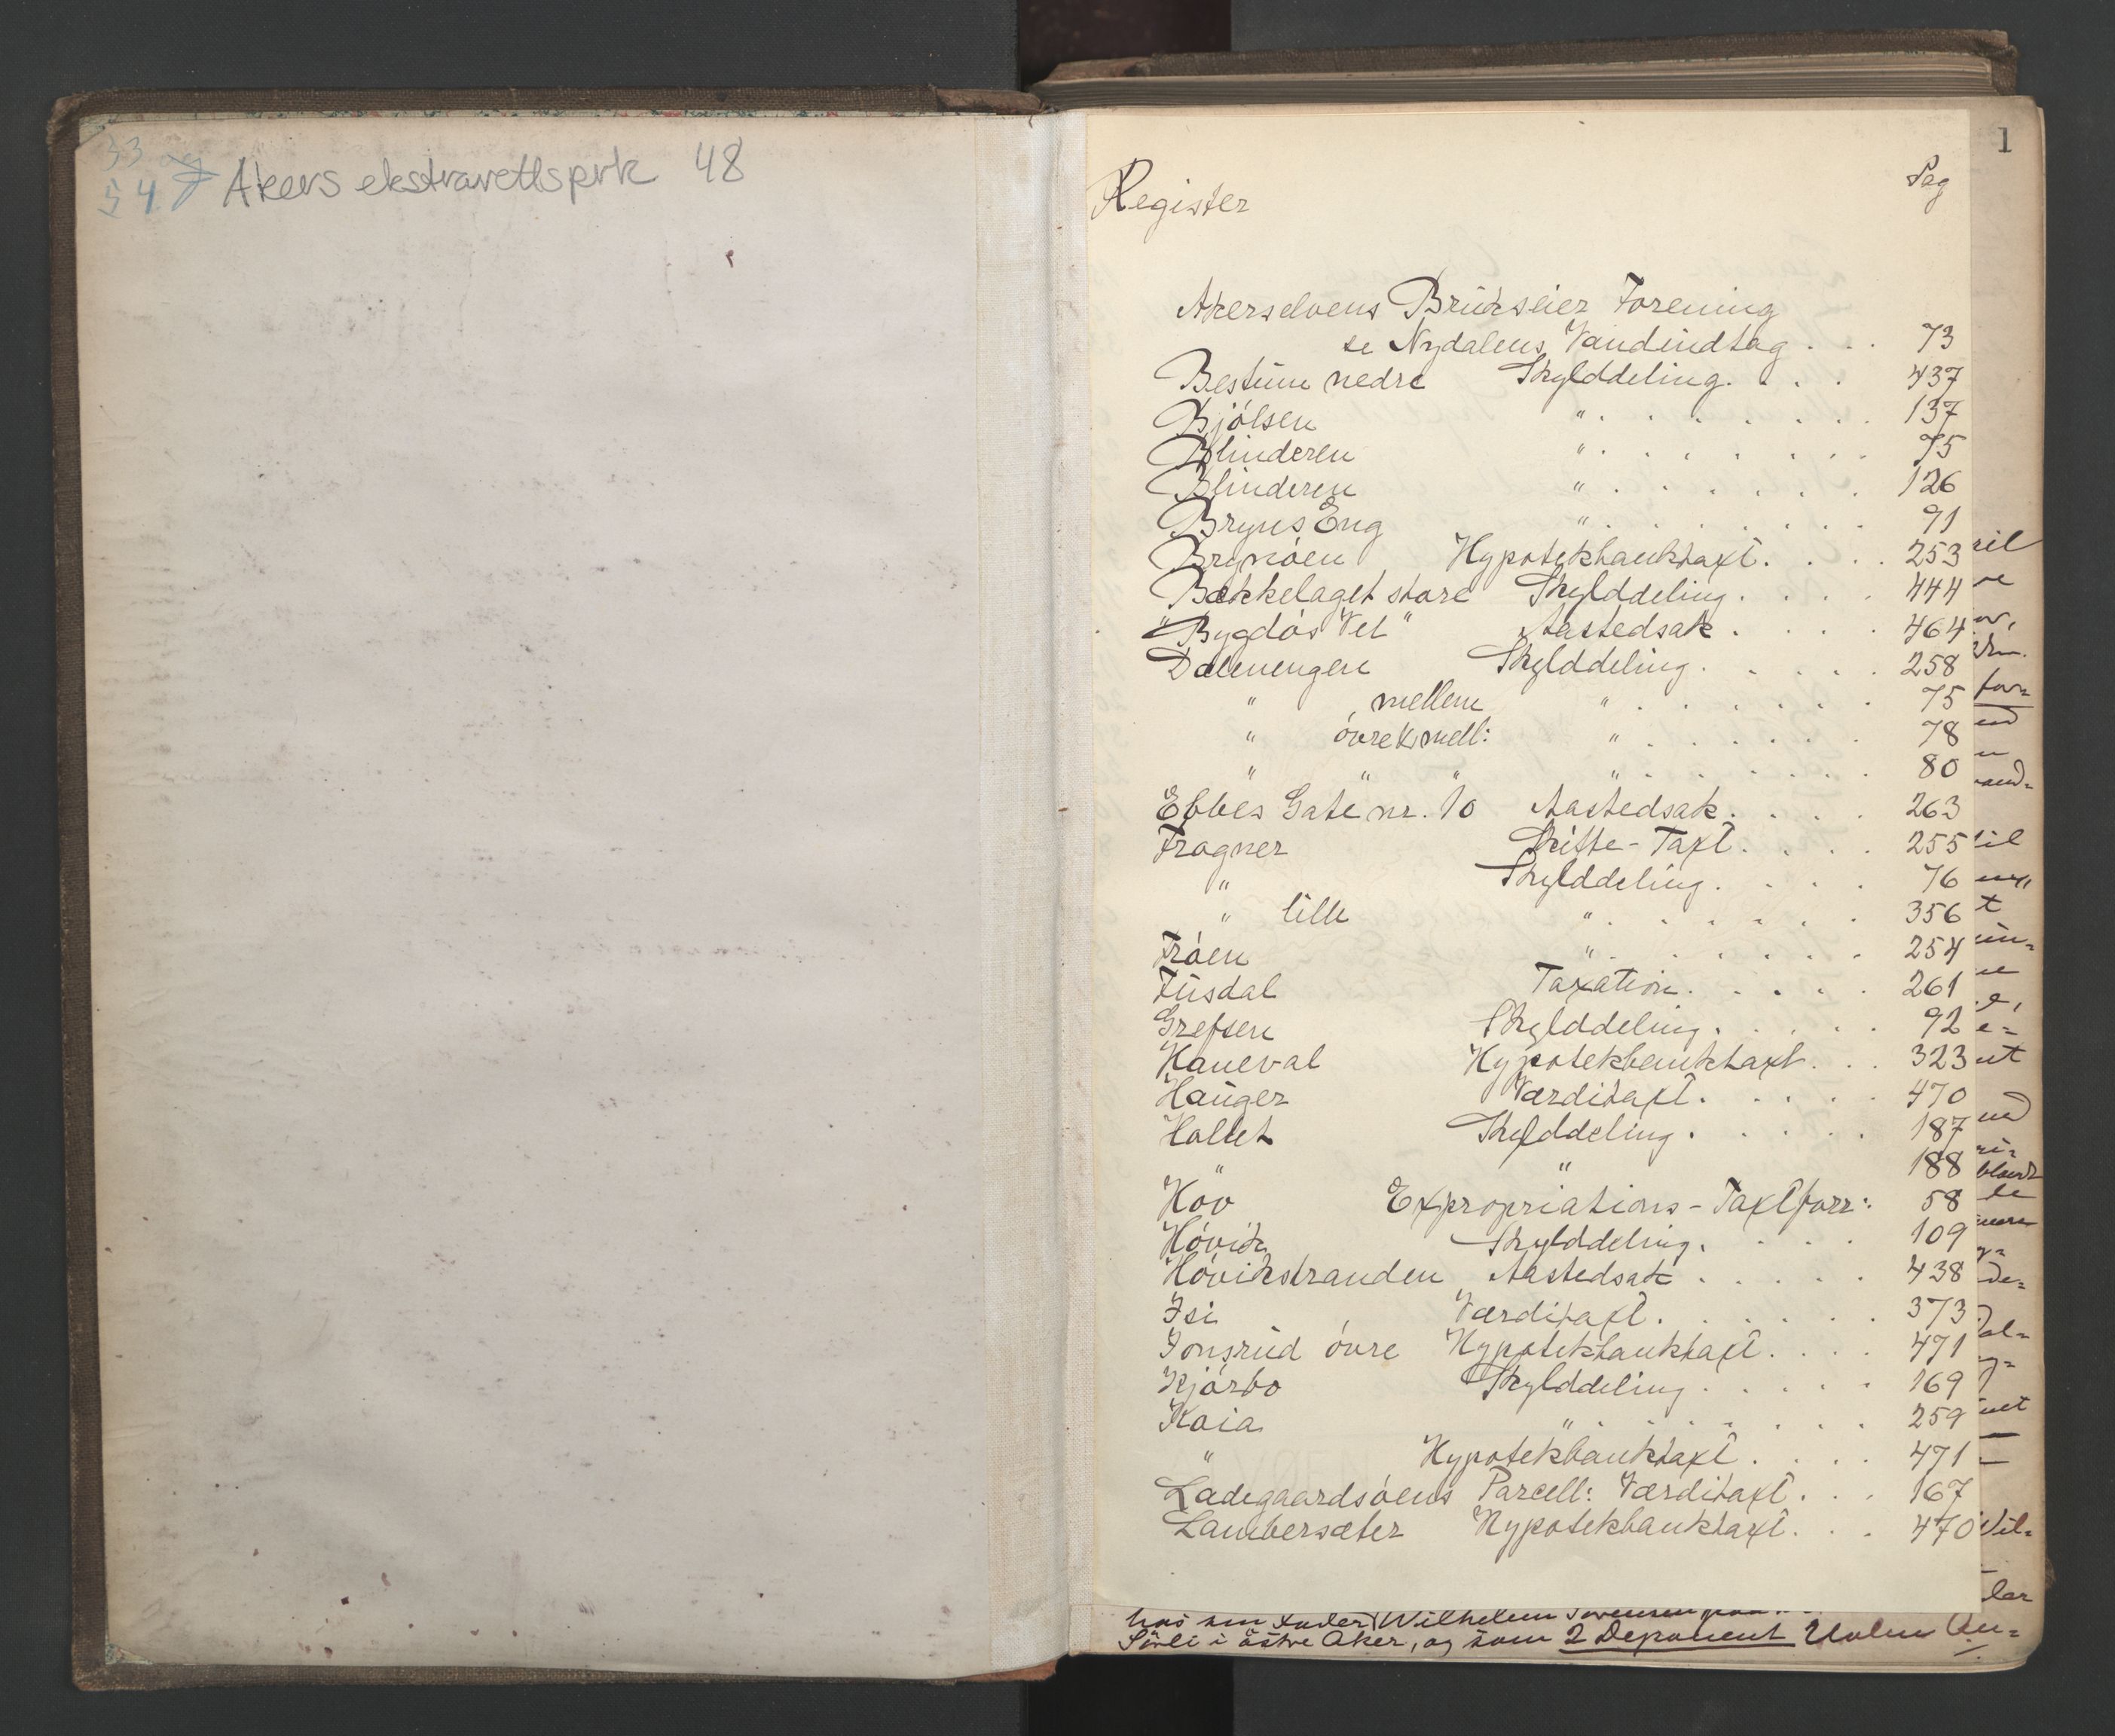 33 og
54
Akers ekstrarettsprk 48
1
Pag
Register
Akerselvens Brukseier Forening
se Nydalens Vandindtag . . . 73
Bestum nedre Skylddeling. . . . 437
Bjölsen " . . . . . . . . 137
Blinderen " . . . . . . . . 75
Blinderen " . . . . . . . 126
Bryns Eng " . . . . . . . . 91
Brynsöen Hypotekbanktaxt. . . . 253
Bækkelaget store Skylddeling. . . . 444
"Bygdös Vel" Aastedsak . . . . 464
Dælenengen Skylddeling. . . . . 258
" mellem " . . . . . . . 75
" övre & mell: " . . . . . . 78
" " " " . . . . . . . 80
Ebbes Gate nr. 10 Aastedsak. . . . 263
Frogner Skifte-Taxt. . . . 255
" Skylddeling. . . . 76
" lille " . . . . . . . 356
Fröen " . . . . . . . 254
Fusdal Taxation. . . . . 261
Grefsen Skylddeling. . . . . 92
Haneval Hypotekbanktaxt. . . 323
Hauger Værditaxt. . . . . 470
Hollet Skylddeling. . . . . 187
" " 188
Hov Expropriations-Taxtforr: 58
Hövik Skylddeling. . . . 109
Hövikstranden Aastedsak . . . . . 438
Isi Værditaxt. . . . . . . 373
Jonsrud övre Hypotekbanktaxt. . . . 471
Kjörbo Skylddeling . . . . . 169
Kaia " . . . . . . . . 259
" Hypotekbanktaxt. . . . 471
Ladegaardsöens Parcell: Værditaxt. . . 167
Lambersæter Hypotekbanktaxt. . . . 470
hos sin Fader Wilhelm
i östre Aker, og som 2 Deponent